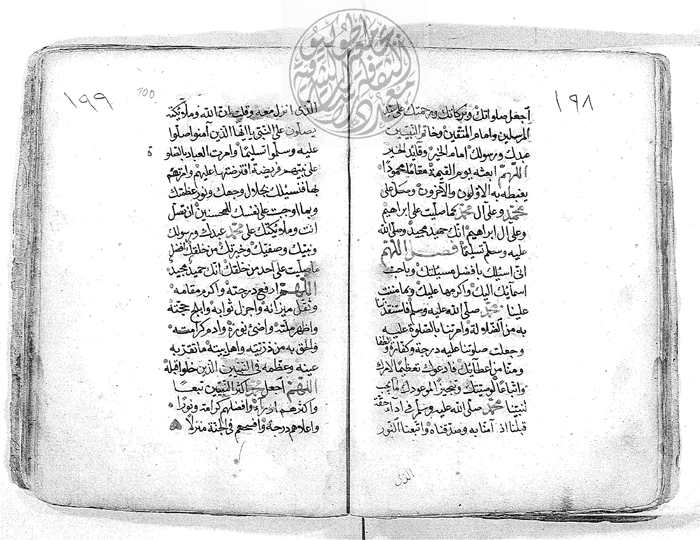 ١٩٨
اجعل صلواتك وبركاتك ورحمتك على سيد
المرسلين وامام المتقين وخاتم النبيين
عبدك ورسولك امام الخير وقايد الخير
اللهم ابعثه يوم القيمة مقاما محمودا
يغبطه به الاولون والاخرون وصل على
محمد وعلى ال محمد كما صليت على ابراهيم
وعلى ال ابراهيم انك حميد مجيد وصلى الله
عليه وسلم تسليما فصل اللهم
انى اسئلك بافضل مسئلتك وباحب
اسمائك اليك واكرمها عليك وبما مننت
علينا محمد صلى الله عليه وسلم فاستنقذتنا
به من الضلولة وامرتنا بالصلوة عليه
وجعلت صلوتنا عليه درجة وكفارة ولطفا
ومنا من اعطائك فادعوك تعظيما لامرك
واتباعا لوصيتك وتنجيز الموعودك بما يجب
لنبينا محمد صلى الله عليه وسلم فى اداء حقه
قبلنا اذ امنا به وصدقناه واتبعنا النور
الذى
١٩٩
100
الذى انزل معه وقلت ان الله وملائكته
يصلون على النبى يا ايها الذين امنوا صلوا
عليه وسلموا تسليما وامرت العباد بالصلوة
على نبيهم فريضة افترضتها عليهم وامرتهم
بها فنسئلك بجلال وجهك ونور عظمتك
وبما اوجبت على نفسك للمحسنين ان تصلى
انت وملائكتك على محمد عبدك ورسولك
ونبيك وصفيك وخيرتك من خلقك افضل
ما صليت على احد من خلقك انك حميد مجيد
اللهم ارفع درجته واكرم مقامه
وثقل ميزانه واجزل ثوابه وابلج حجته
واظهر ملته واضئ نوره وادم كرامته
والحق به من ذريته واهل بيته ما تقر به
عينه وعظمه فى النبيين الذين خلوا قبله
اللهم اجعل محمدا اكثر النبيين تبعا
واكثرهم ازراء وافضلهم كرامة ونورا
واعلاهم درجة وافسحهم فى الجنة منزلا